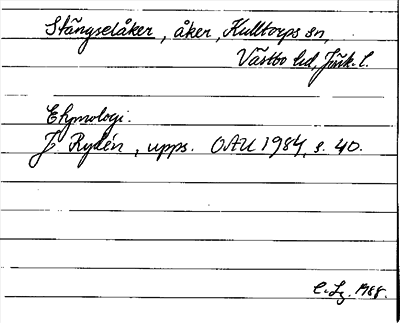 Stängselåker, åker, Kulltorps sn,
Västbo hd, Jönk. l.
Etymologi.
J. Rydén, upps. OAU 1984, s. 40.
C. Lz. 1988.